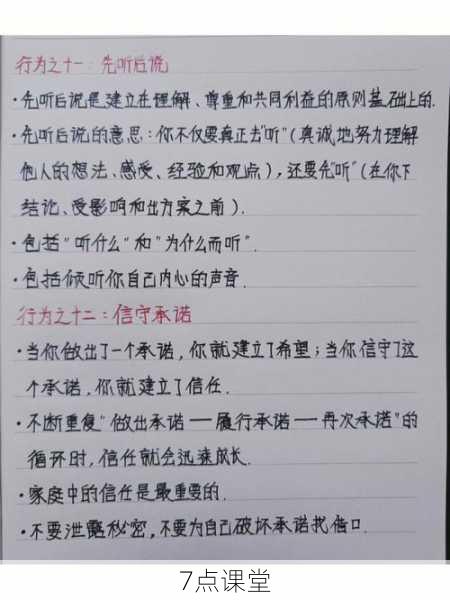 行为之十一：先听后说
·先听后说是建立在理解、尊重和共同利益的原则基础上的.
·先听后说的意思：你不仅要真正去"听"（真诚地努力理解
他人的想法、感受、经验和观点），还要先"听"（在你下
结论、受影响和出方案之前）.
·包括"听什么"和"为什么而听".
·包括倾听你自己内心的声音.
行为之十二：信守承诺
·当你做出了一个承诺，你就建立了希望；当你信守了这
个承诺，你就建立了信任.
·不断重复"做出承诺——履行承诺——再次承诺"的
循环时，信任就会迅速成长.
·家庭中的信任是最重要的.
·不要泄露秘密，不要为自己破坏承诺找借口.
7点课堂